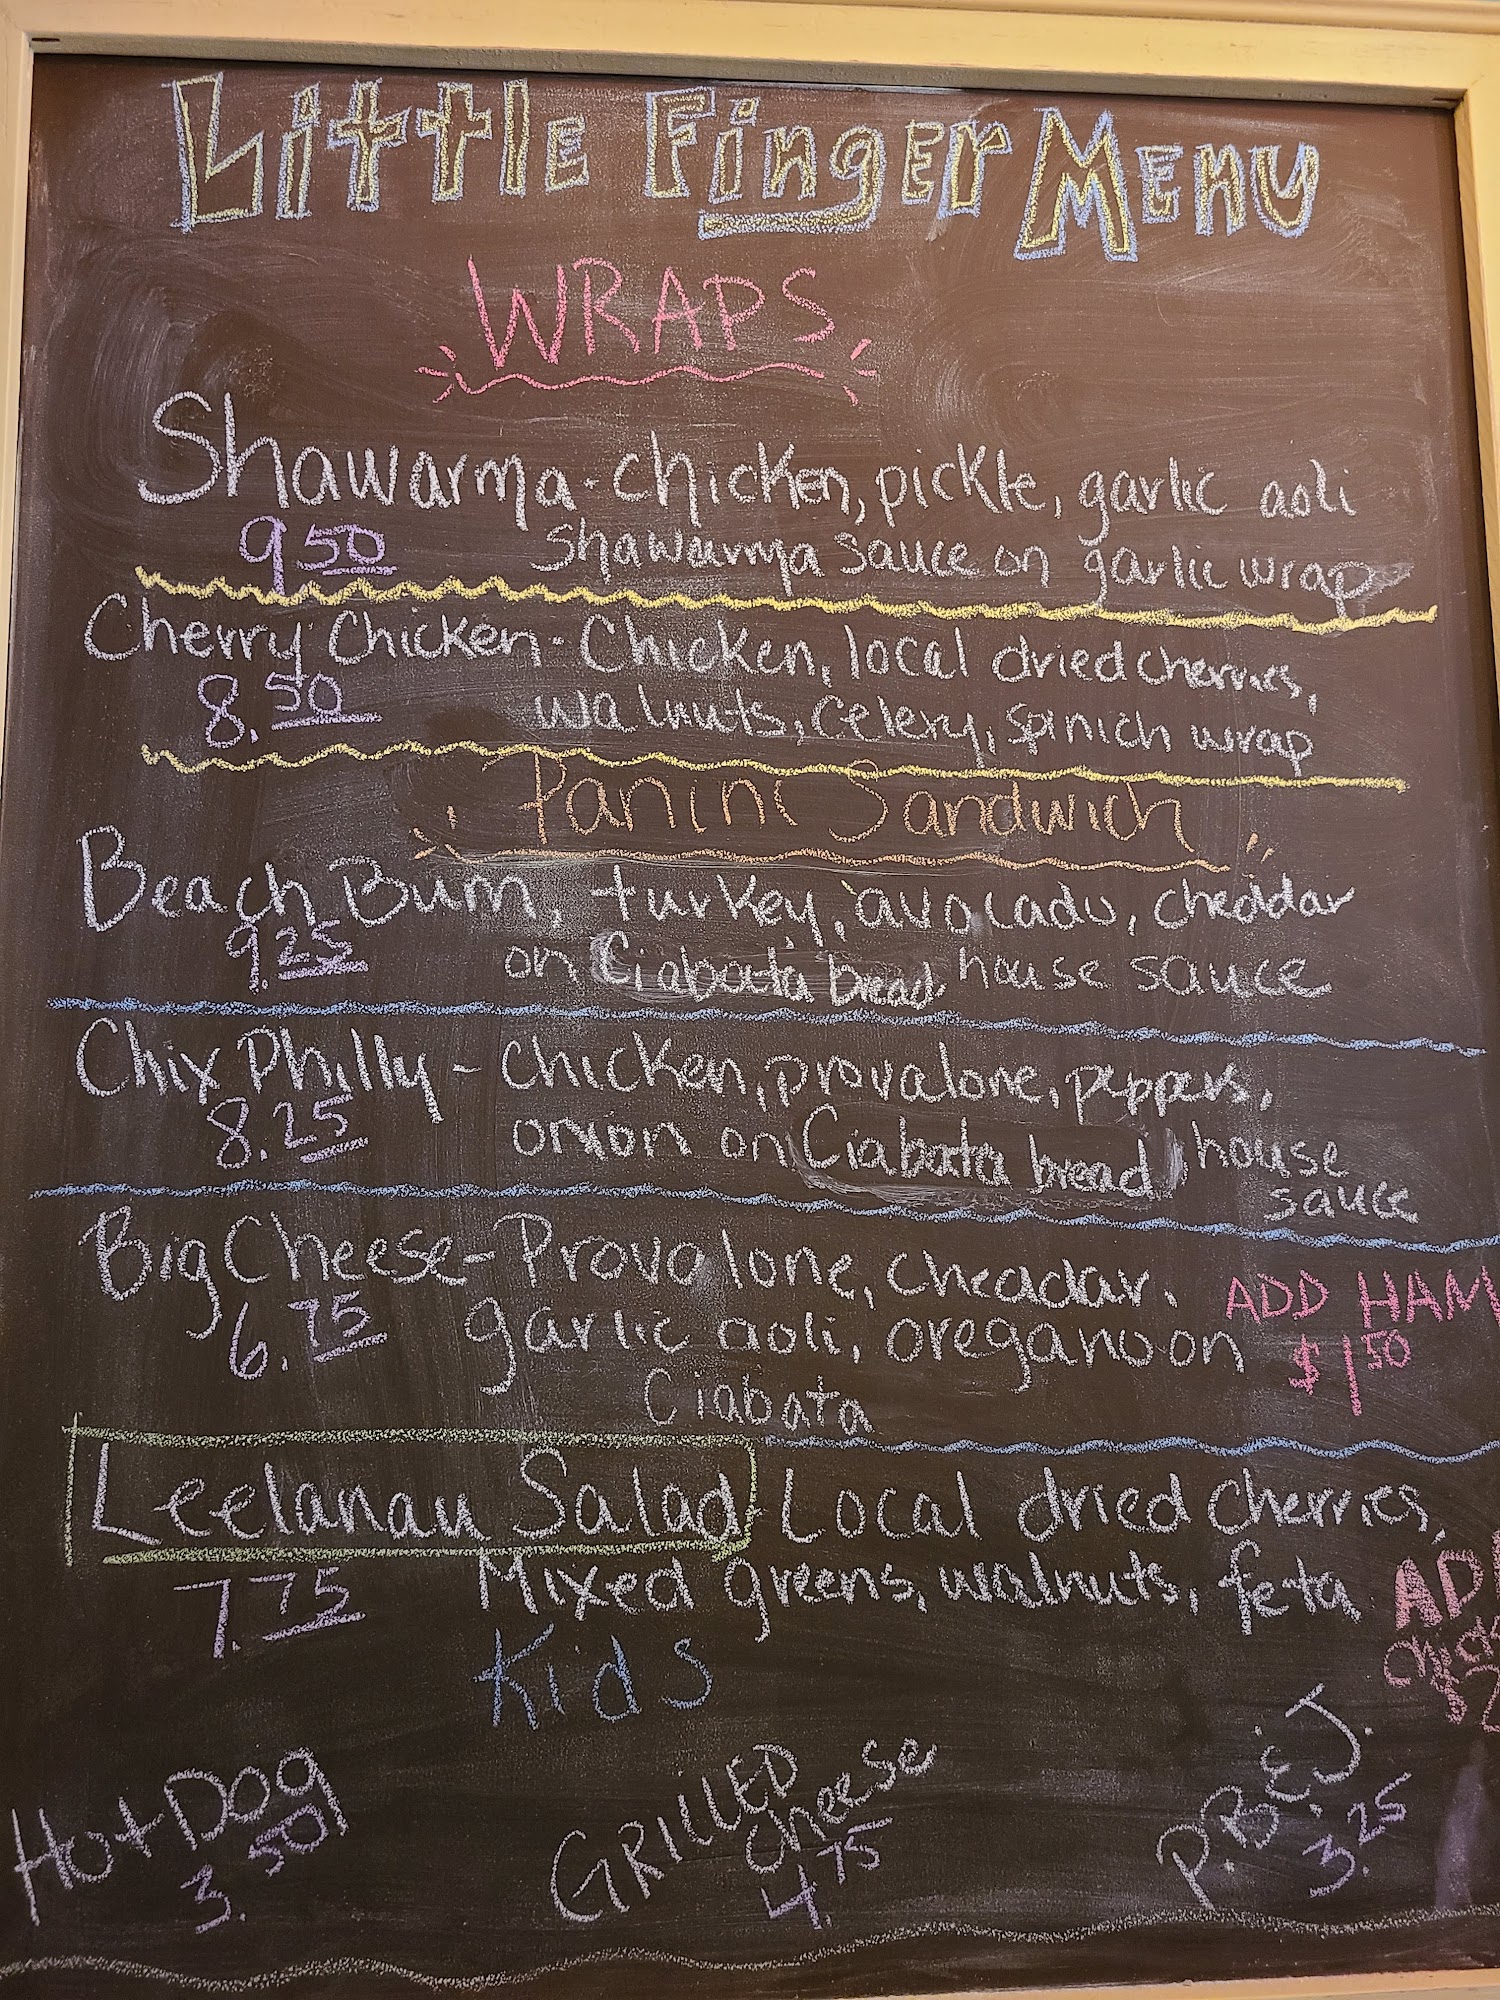 Little Finger Menu
WRAPS
Shawarma - chicken, pickle, garlic aoli
9.50 Shawurma sauce on garlic wrap
Cherry Chicken - Chicken, local dried cherries,
8.50 walnuts, celery, spinich wrap
Panini Sandwich
Beach Bum, turkey, avocado, cheddar
9.25 on Ciabata bread house sauce
Chix Philly - chicken, provalone, peppers,
8.25 onion on Ciabata bread, house
sauce
Big Cheese - Provalone, cheddar,
ADD HAM
6.75 garlic aoli, oregano on
$1.50
Ciabata
Leelanau Salad Local dried cherries,
7.75 Mixed greens, walnuts, feta
ADD
$2
Kids
Hot Dog
3.50
GRILLED
cheese
4.75
P.B.&J.
3.25